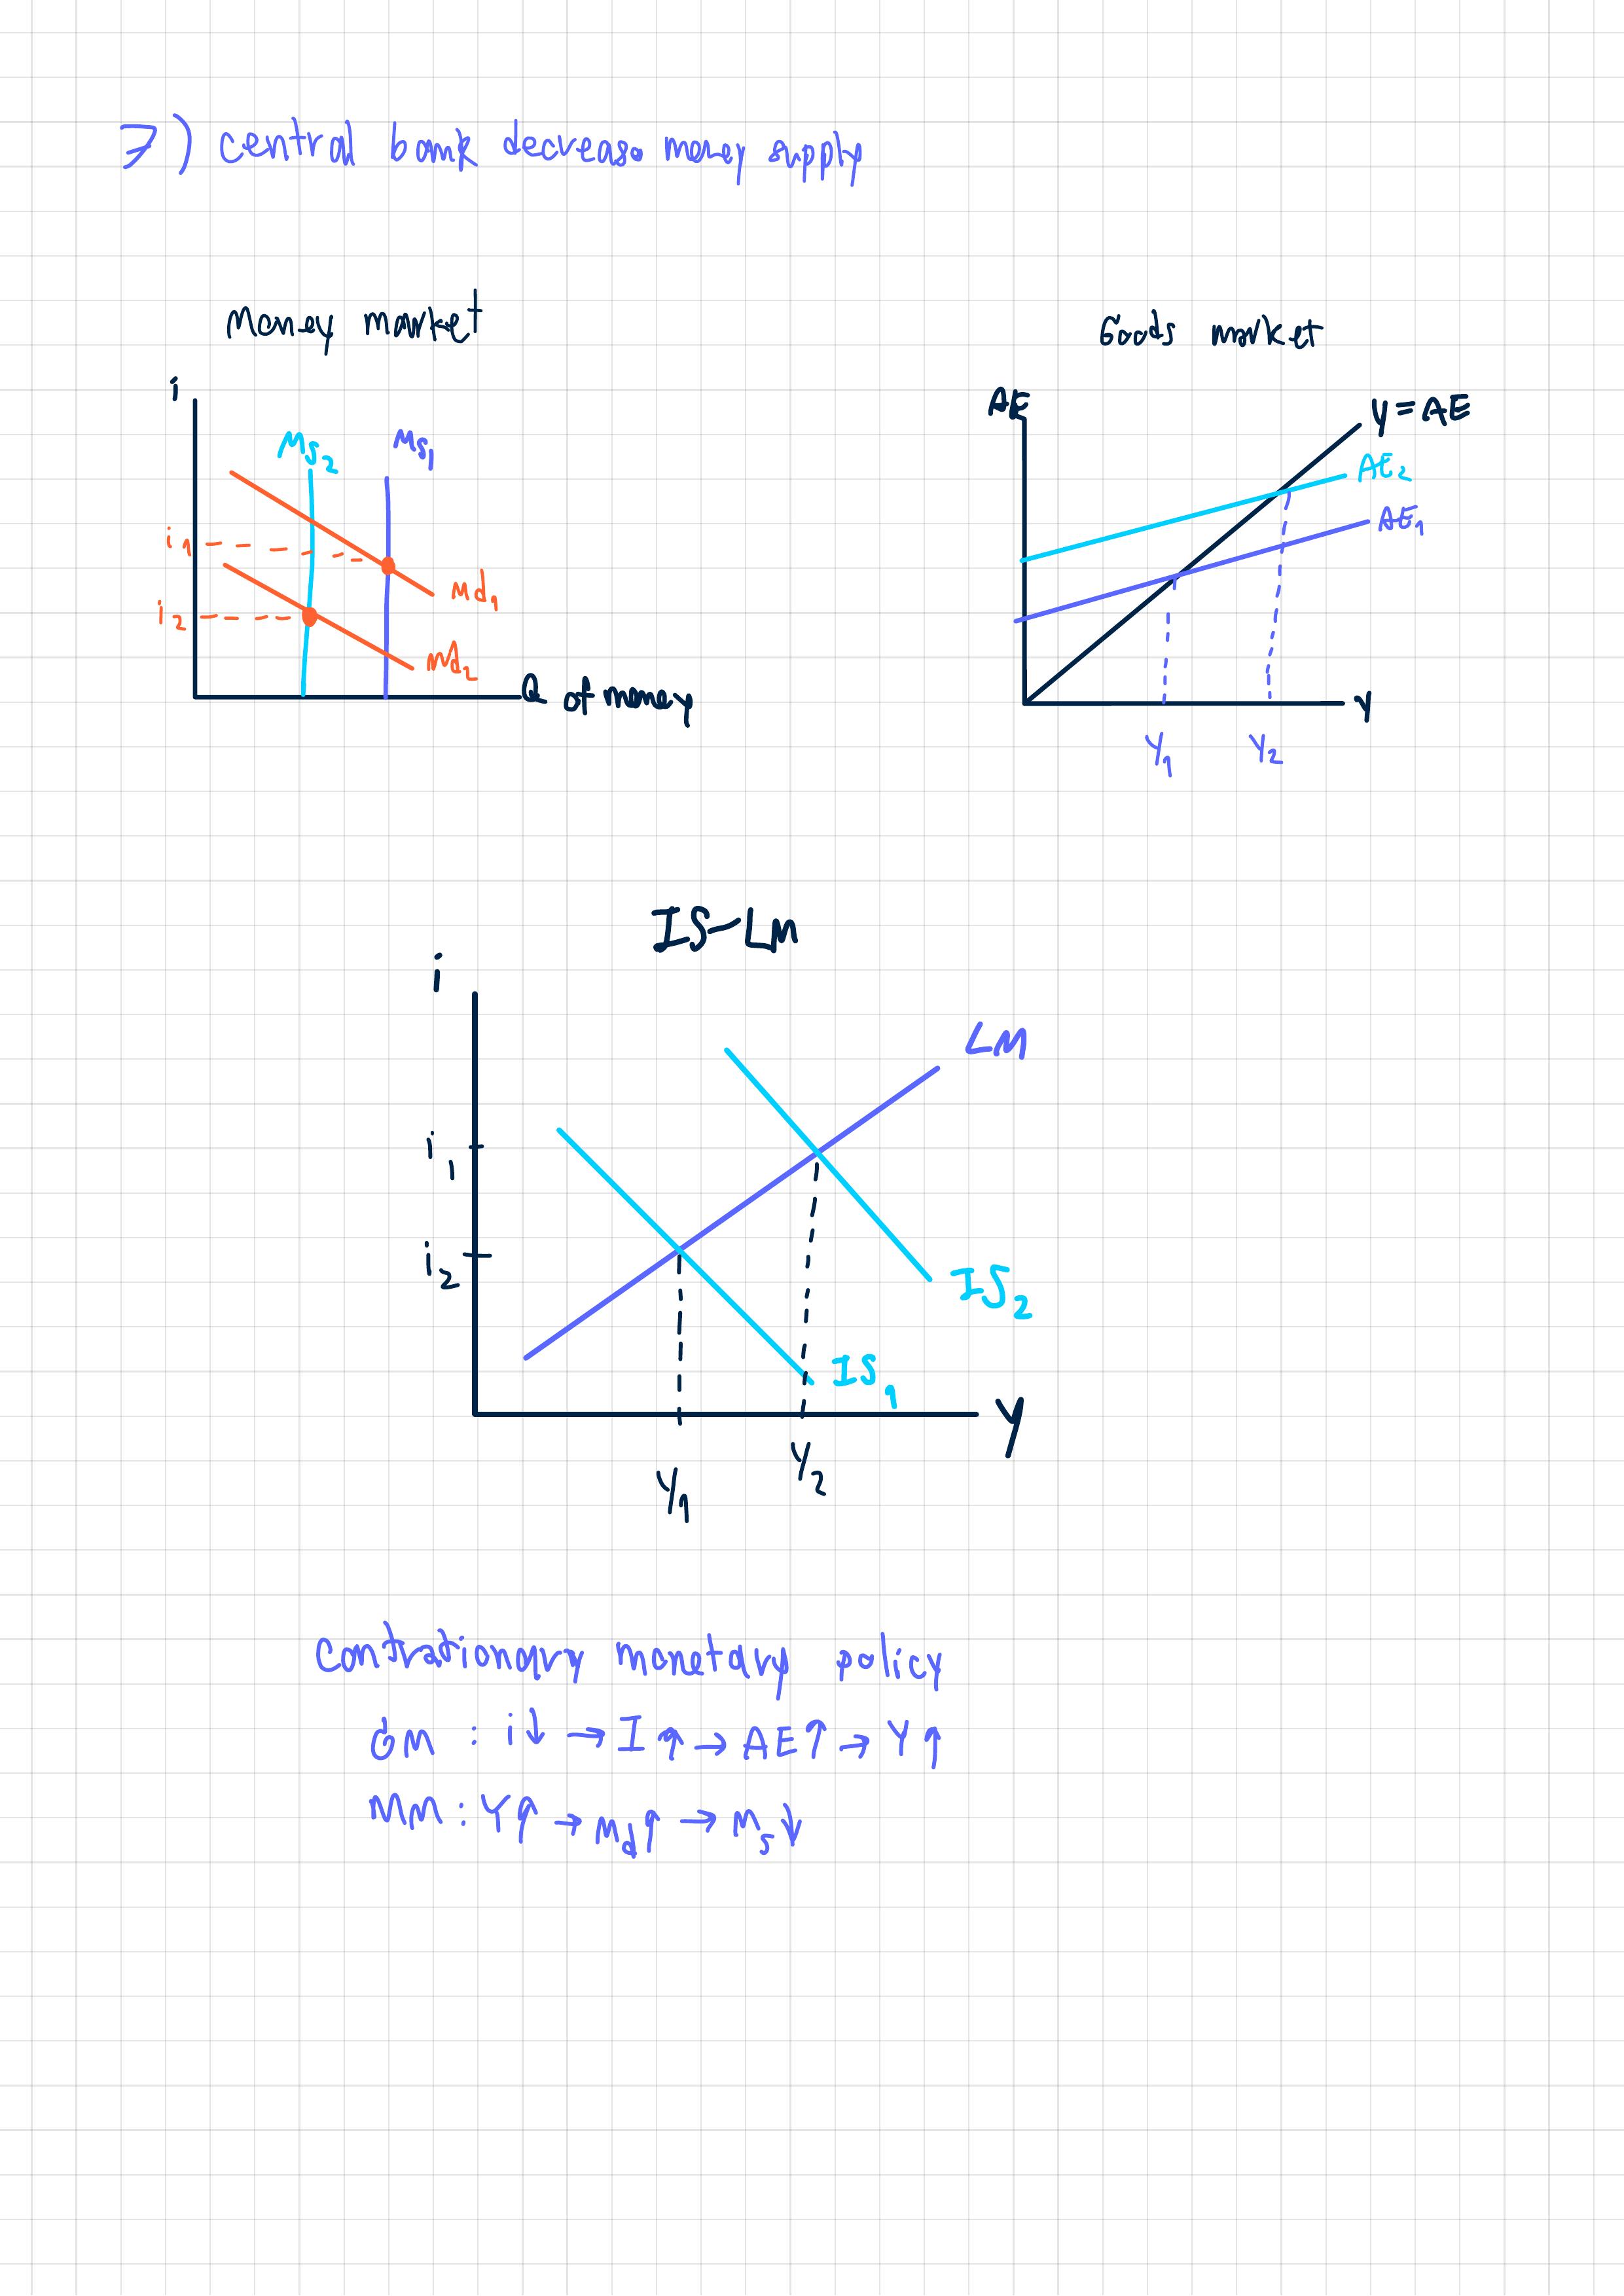 7) central bank decrease money supply
Money market
Goods market
i
Ms2
Ms1
i1
i2
Md1
Md2
Q of money
AE
Y=AE
AE2
AE1
Y
Y1
Y2
IS-LM
i
LM
i1
i2
IS2
IS1
Y
Y1
Y2
contrationary monetary policy
GM : i↓ → I↑ → AE↑ → Y↑
MM : Y↑ → Md↑ → Ms↓